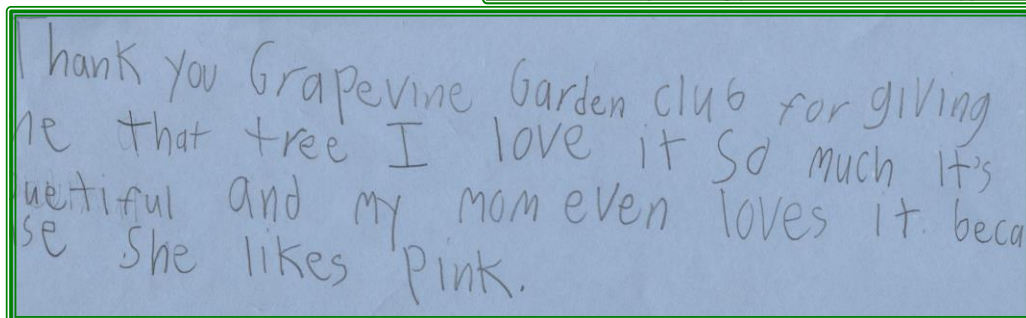 Thank you Grapevine Garden club for giving
me that tree I love it so much It's
buetiful and my mom even loves it. beca
se She likes Pink.